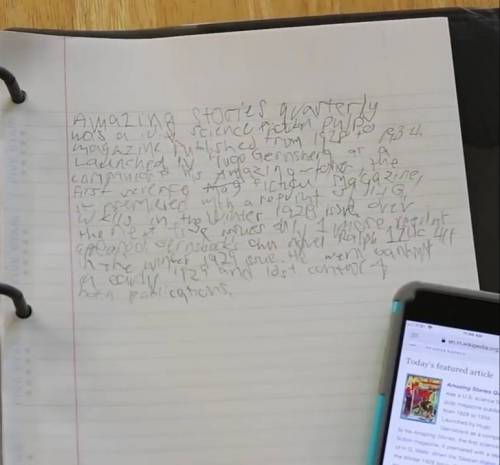 Amazing Stories quarterly
was a U.S. science fiction pulp
magazine published from 1928 to 1934.
Launched by Hugo Gernsback as a
companion to his Amazing Stories, the
first science fiction magazine,
it premiered with a reprint of H.G.
Wells in the Winter 1928 issue. Over
the next five issues only 1 more reprint
appeared Gernsback's own novel Ralph 124C 41+
in the winter 1929 issue. He went bankrupt
in early 1929 and lost control of
both publications.
11:46 AM
en.m.wikipedia.org
Today's featured article
Amazing Stories Qu
was a U.S. science f
pulp magazine publis
from 1928 to 1934.
Launched by Hugo
Gernsback as a compa
to his Amazing Stories, the first science
fiction magazine, it premiered with a rep
of H.G. Wells' When the Sleeper Wakes
the Winter 1928